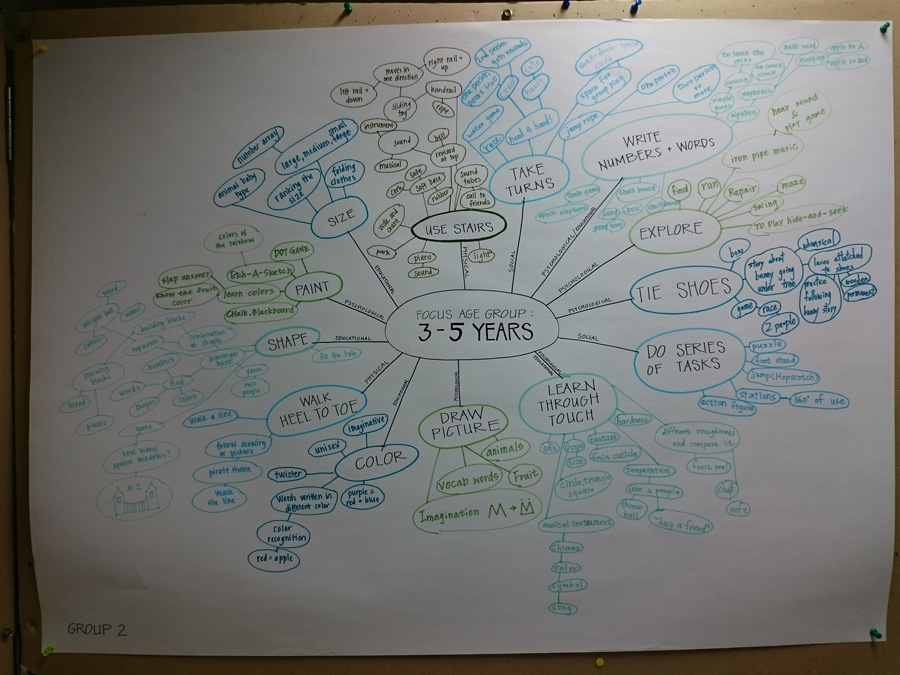 FOCUS AGE GROUP:
3-5 YEARS
PSYCHOLOGICAL
EDUCATIONAL
PHYSICAL
SOCIAL
PSYCHOLOGICAL/EDUCATIONAL
PSYCHOLOGICAL
PSYCHOLOGICAL
SOCIAL
EDUCATIONAL
PHYSICAL
SIZE
number array
small
large, medium, large
animal baby
type
ranking the
size
folding
clothes
USE STAIRS
left rail =
down
moves in
one direction
right rail =
up
sliding
toy
handrail
rope
instrument
sound
musical
bell
reward
at top
safe
soft base
rubber
sound
tubes
call to
friends
walk and
park
piano
sound
light
TAKE
TURNS
2nd person
water game
race
head & hands
space for
group play
jump rope
one person
two person
or more
WRITE
NUMBERS + WORDS
to learn the
count
simple
alphabet
make word
apple to A
chalk board
train game
apple elephant
sand
box
EXPLORE
hear sound
&
play game
iron pipe music
find
run
Repair
maze
swing
to play hide-and-seek
TIE SHOES
bow
story about
bunny going
under tree
whimsical
laces attatched
to shoes
practice
following
bunny story
wooden
permanent
game
race
2 people
DO SERIES
OF TASKS
puzzle
foot stand
jump(Hopscotch)
stations
360° of use
action figure
LEARN
THROUGH
TOUCH
hardness
texture
size
fruit
circle, triangle
square
different roughness
and compare it
fruit peel
shelf
sofa
temperature
like 2 people
throw
ball
"hug a friend"
musical instrument
chimes
color
symbol
song
DRAW
PICTURE
animals
vocab words
Fruit
Imagination M → M̈
COLOR
imaginative
unisex
twister
words written in
different color
purple =
red + blue
color
recognition
red = apple
WALK
HEEL TO TOE
walk a line
follow drawing
or picture
pirate theme
walk
the line
SHAPE
building blocks
combination
of shapes
scavenger
hunt
numbers
find
words
shapes
colors
two
people
stacking
blocks
plastic
game
how many
square windows?
PAINT
colors of
the rainbow
DOT GAME
Etch-A-Sketch
slap answer
know the fruit
color
learn colors
Chalk, Blackboard
GROUP 2